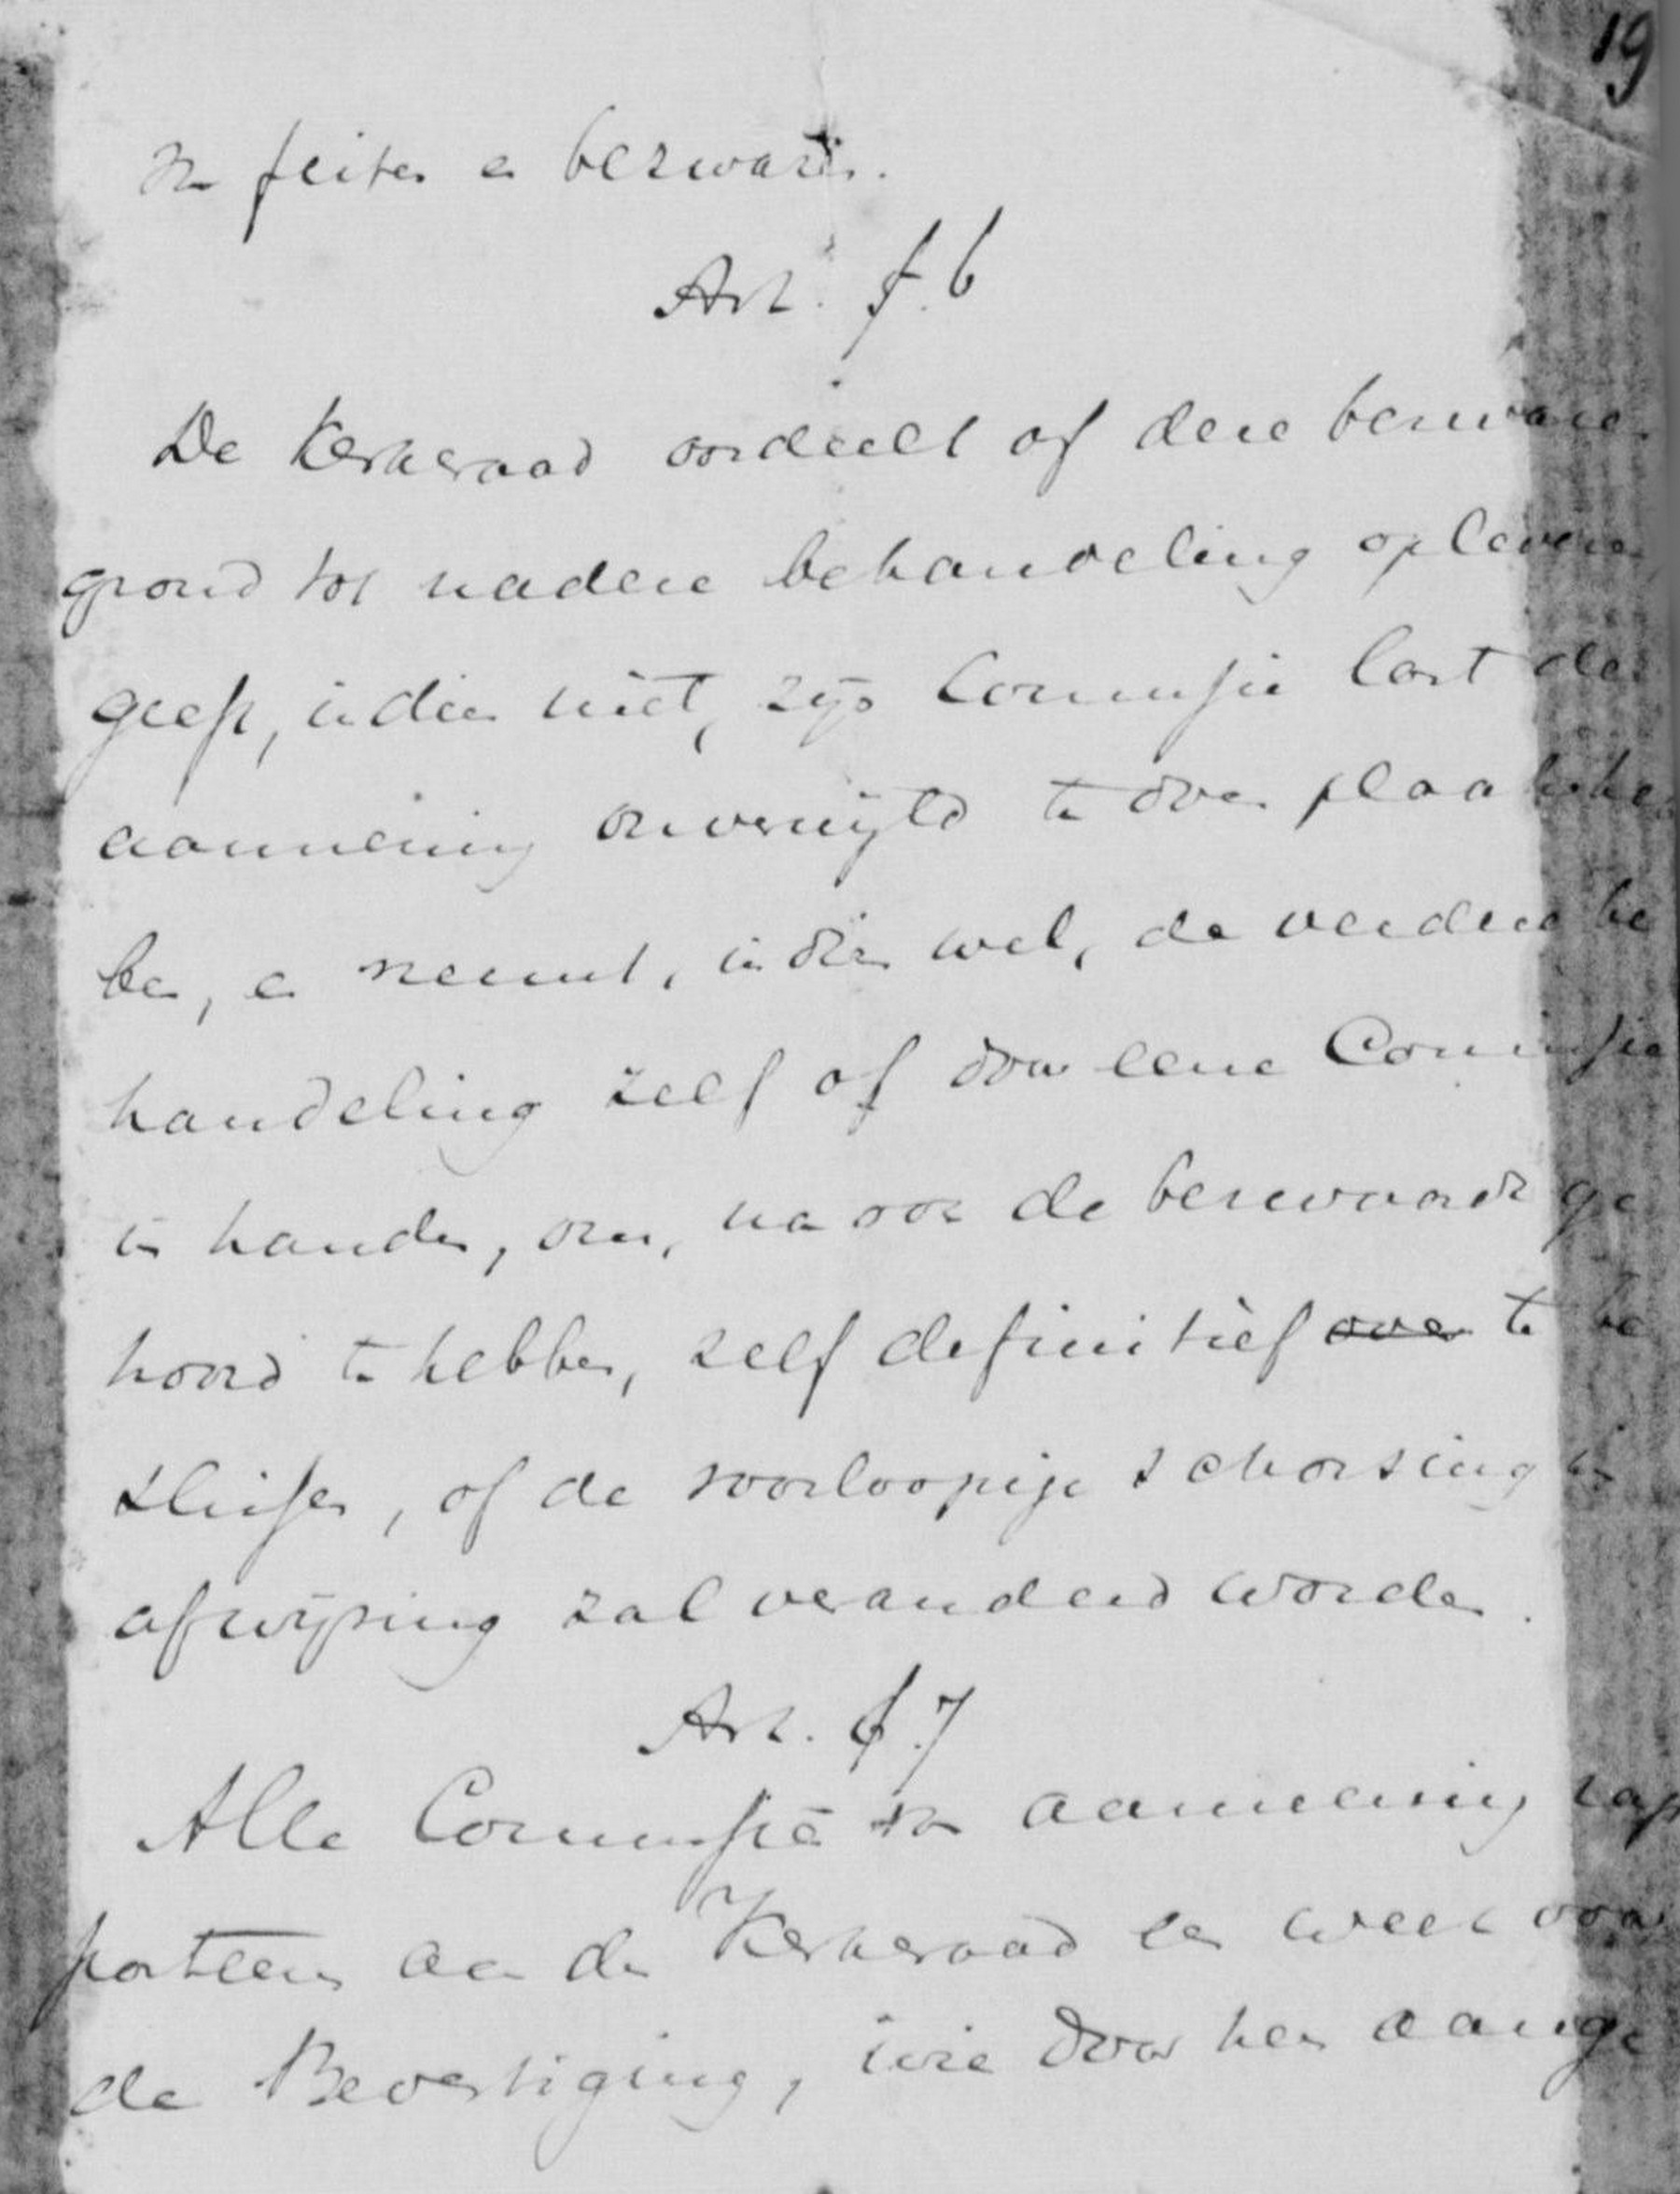 19
van feiten en bezwaren.
Art. f. 6
De Kerkeraad oordeelt of deze bezwaren
grond tot nadere behandeling opleveren,
geeft, indien niet, zijn Commissie last de
aanneming onverwijld te doen plaats heb
ben, en neemt, indien wel, de verdere be
handeling zelf of door eene Commissie
in handen, om, na ook de bezwaarde ge
hoord te hebben, zelf definitief over te be
slissen, of de voorloopige schorsing in
afwijzing zal veranderd worden.
Art. f. 7
Alle Commissiën van aanneming rap
porteeren aan den Kerkeraad een week voor
de Bevestiging, wie door hen aange